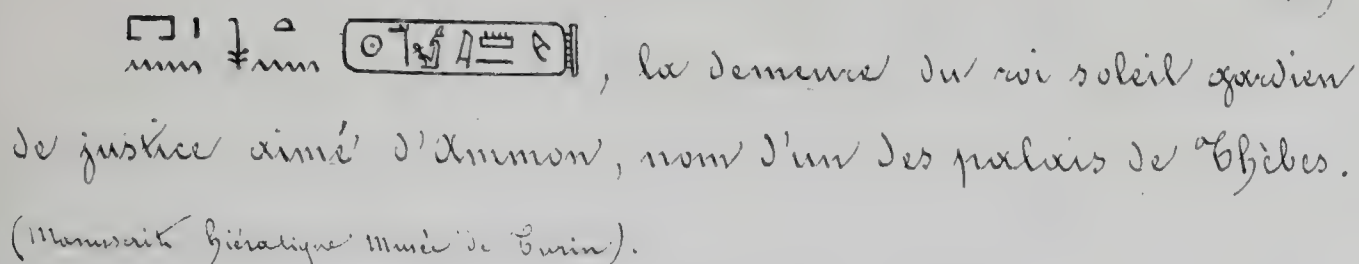 , la demeure du roi soleil gardien
de justice aimé d'Ammon, nom d'un des palais de Thèbes.
(Manuscrit hiératique Musée de Turin).